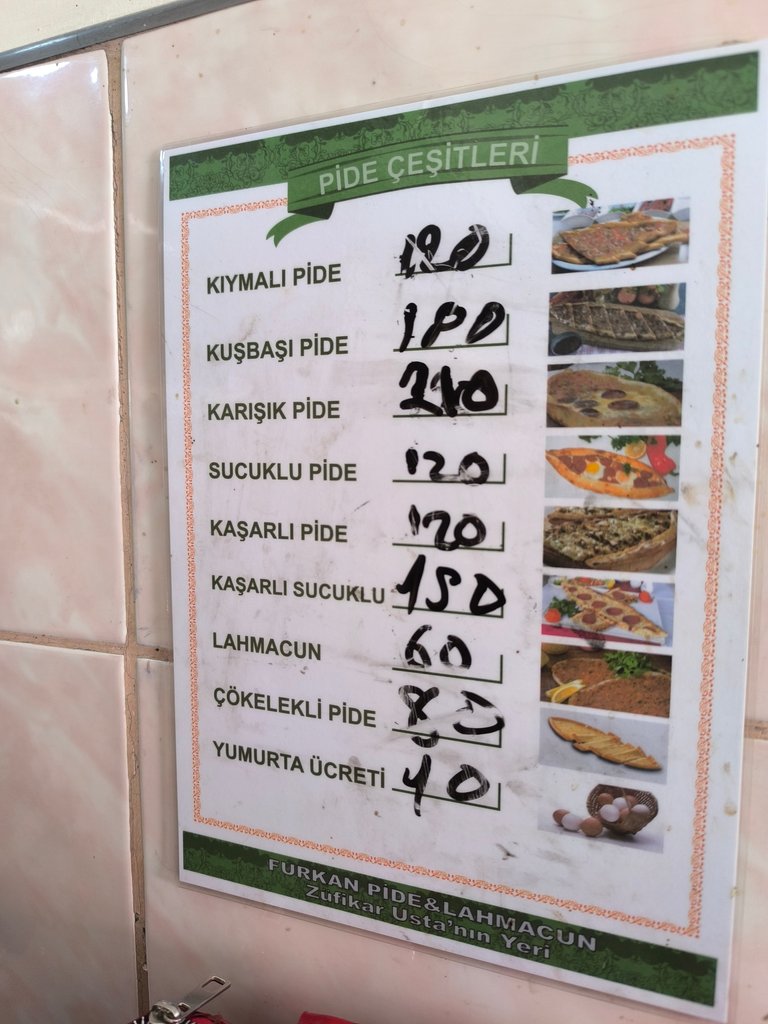 PİDE ÇEŞİTLERİ
KIYMALI PİDE
KUŞBAŞI PİDE 180
KARIŞIK PİDE 210
SUCUKLU PİDE 120
KAŞARLI PİDE 120
KAŞARLI SUCUKLU 150
LAHMACUN 60
ÇÖKELEKLİ PİDE
YUMURTA ÜCRETİ 40
FURKAN PİDE&LAHMACUN
Züfikar Usta'nın Yeri